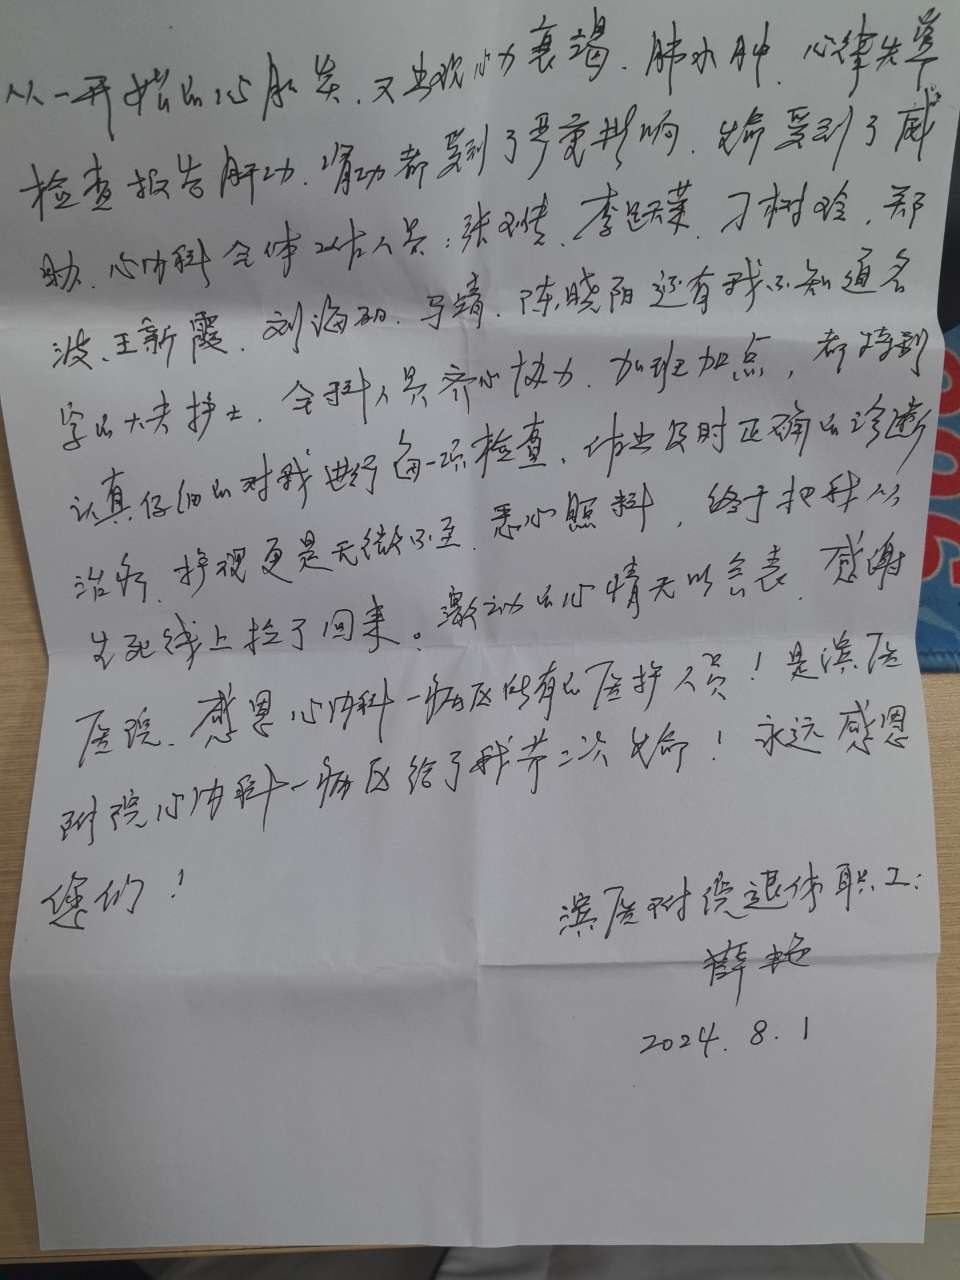 从一开始的心肌炎、又出现心力衰竭、肺水肿、心律失常
检查报告肝功、肾功都受到了严重影响、生命受到了威
胁、心内科全体工作人员：张、李、刁树玲、郑
波、王新霞、刘海、马靖、陈晓阳还有我不知道名
字的大夫护士、全科人员齐心协力、加班加点，都特别
认真仔细的对我进行每一项检查、作出及时正确的诊断
治疗、护理更是无微不至、悉心照料，终于把我从
生死线上捡了回来。激动的心情无以言表、感谢
医院、感恩心内科一病区所有的医护人员！是滨医
附院心内科一病区给了我第二次生命！永远感恩
您们！
滨医附院退休职工：
薛艳
2024.8.1